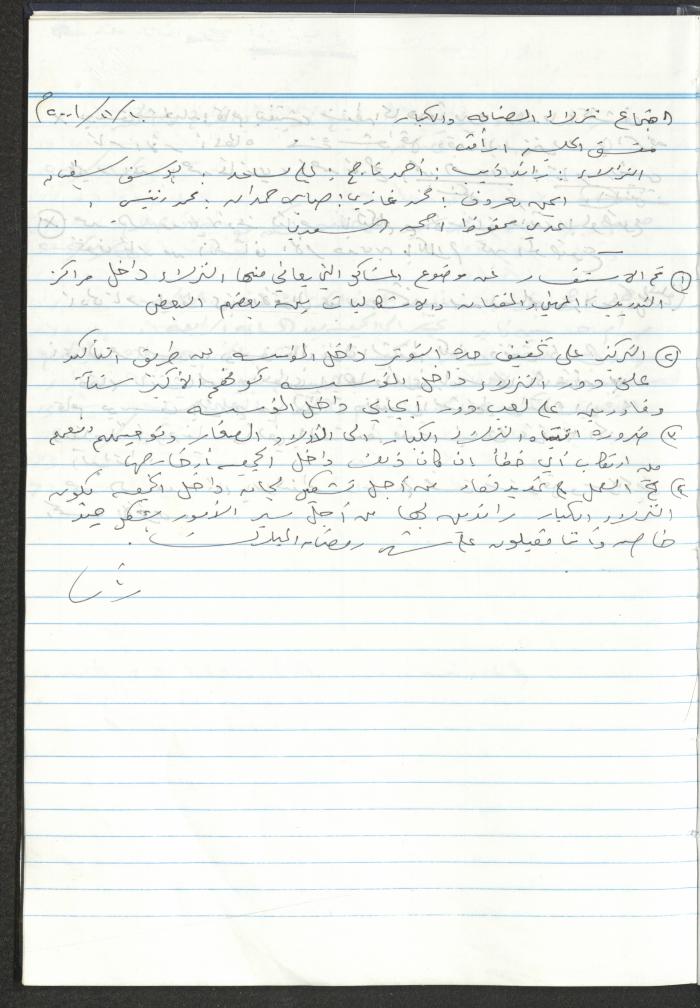 اجتماع نزلاء الصناعة والكبار ١٠/١١/٢٠٠١م
منسق الجلسة : رأفت
النزلاء : رائد ذيب : أحمد ناجح : علي مساعد : يوسف
ايمن معروف : محمد غازي : عباس حمدان : محمد
عدي محفوظ امجد السعدي
١) تم الاستفسار عن موضوع المشاكل التي يعاني منها النزلاء داخل مراكز
التدريب المهني والمشاكل والاشكاليات بين بعضهم البعض
٢) التركيز على تخفيف حدة التوتر داخل المؤسسة عن طريق التأكيد
على دور النزلاء داخل المؤسسة كونهم الأكبر سناً
وقادرين على لعب دور ايجابي داخل المؤسسة
٣) ضرورة انتباه النزلاء الكبار الى الأولاد الصغار وتوجيههم ومنعهم
من ارتكاب أي خطأ ان كان ذلك داخل الجمعية أو خارجها
٤) تم العمل من أجل تشكيل لجان داخل الجمعية يكون
النزلاء الكبار رائدين لها من أجل سير الأمور بشكل جيد
خاصة وأننا مقبلون على شهر رمضان المبارك .